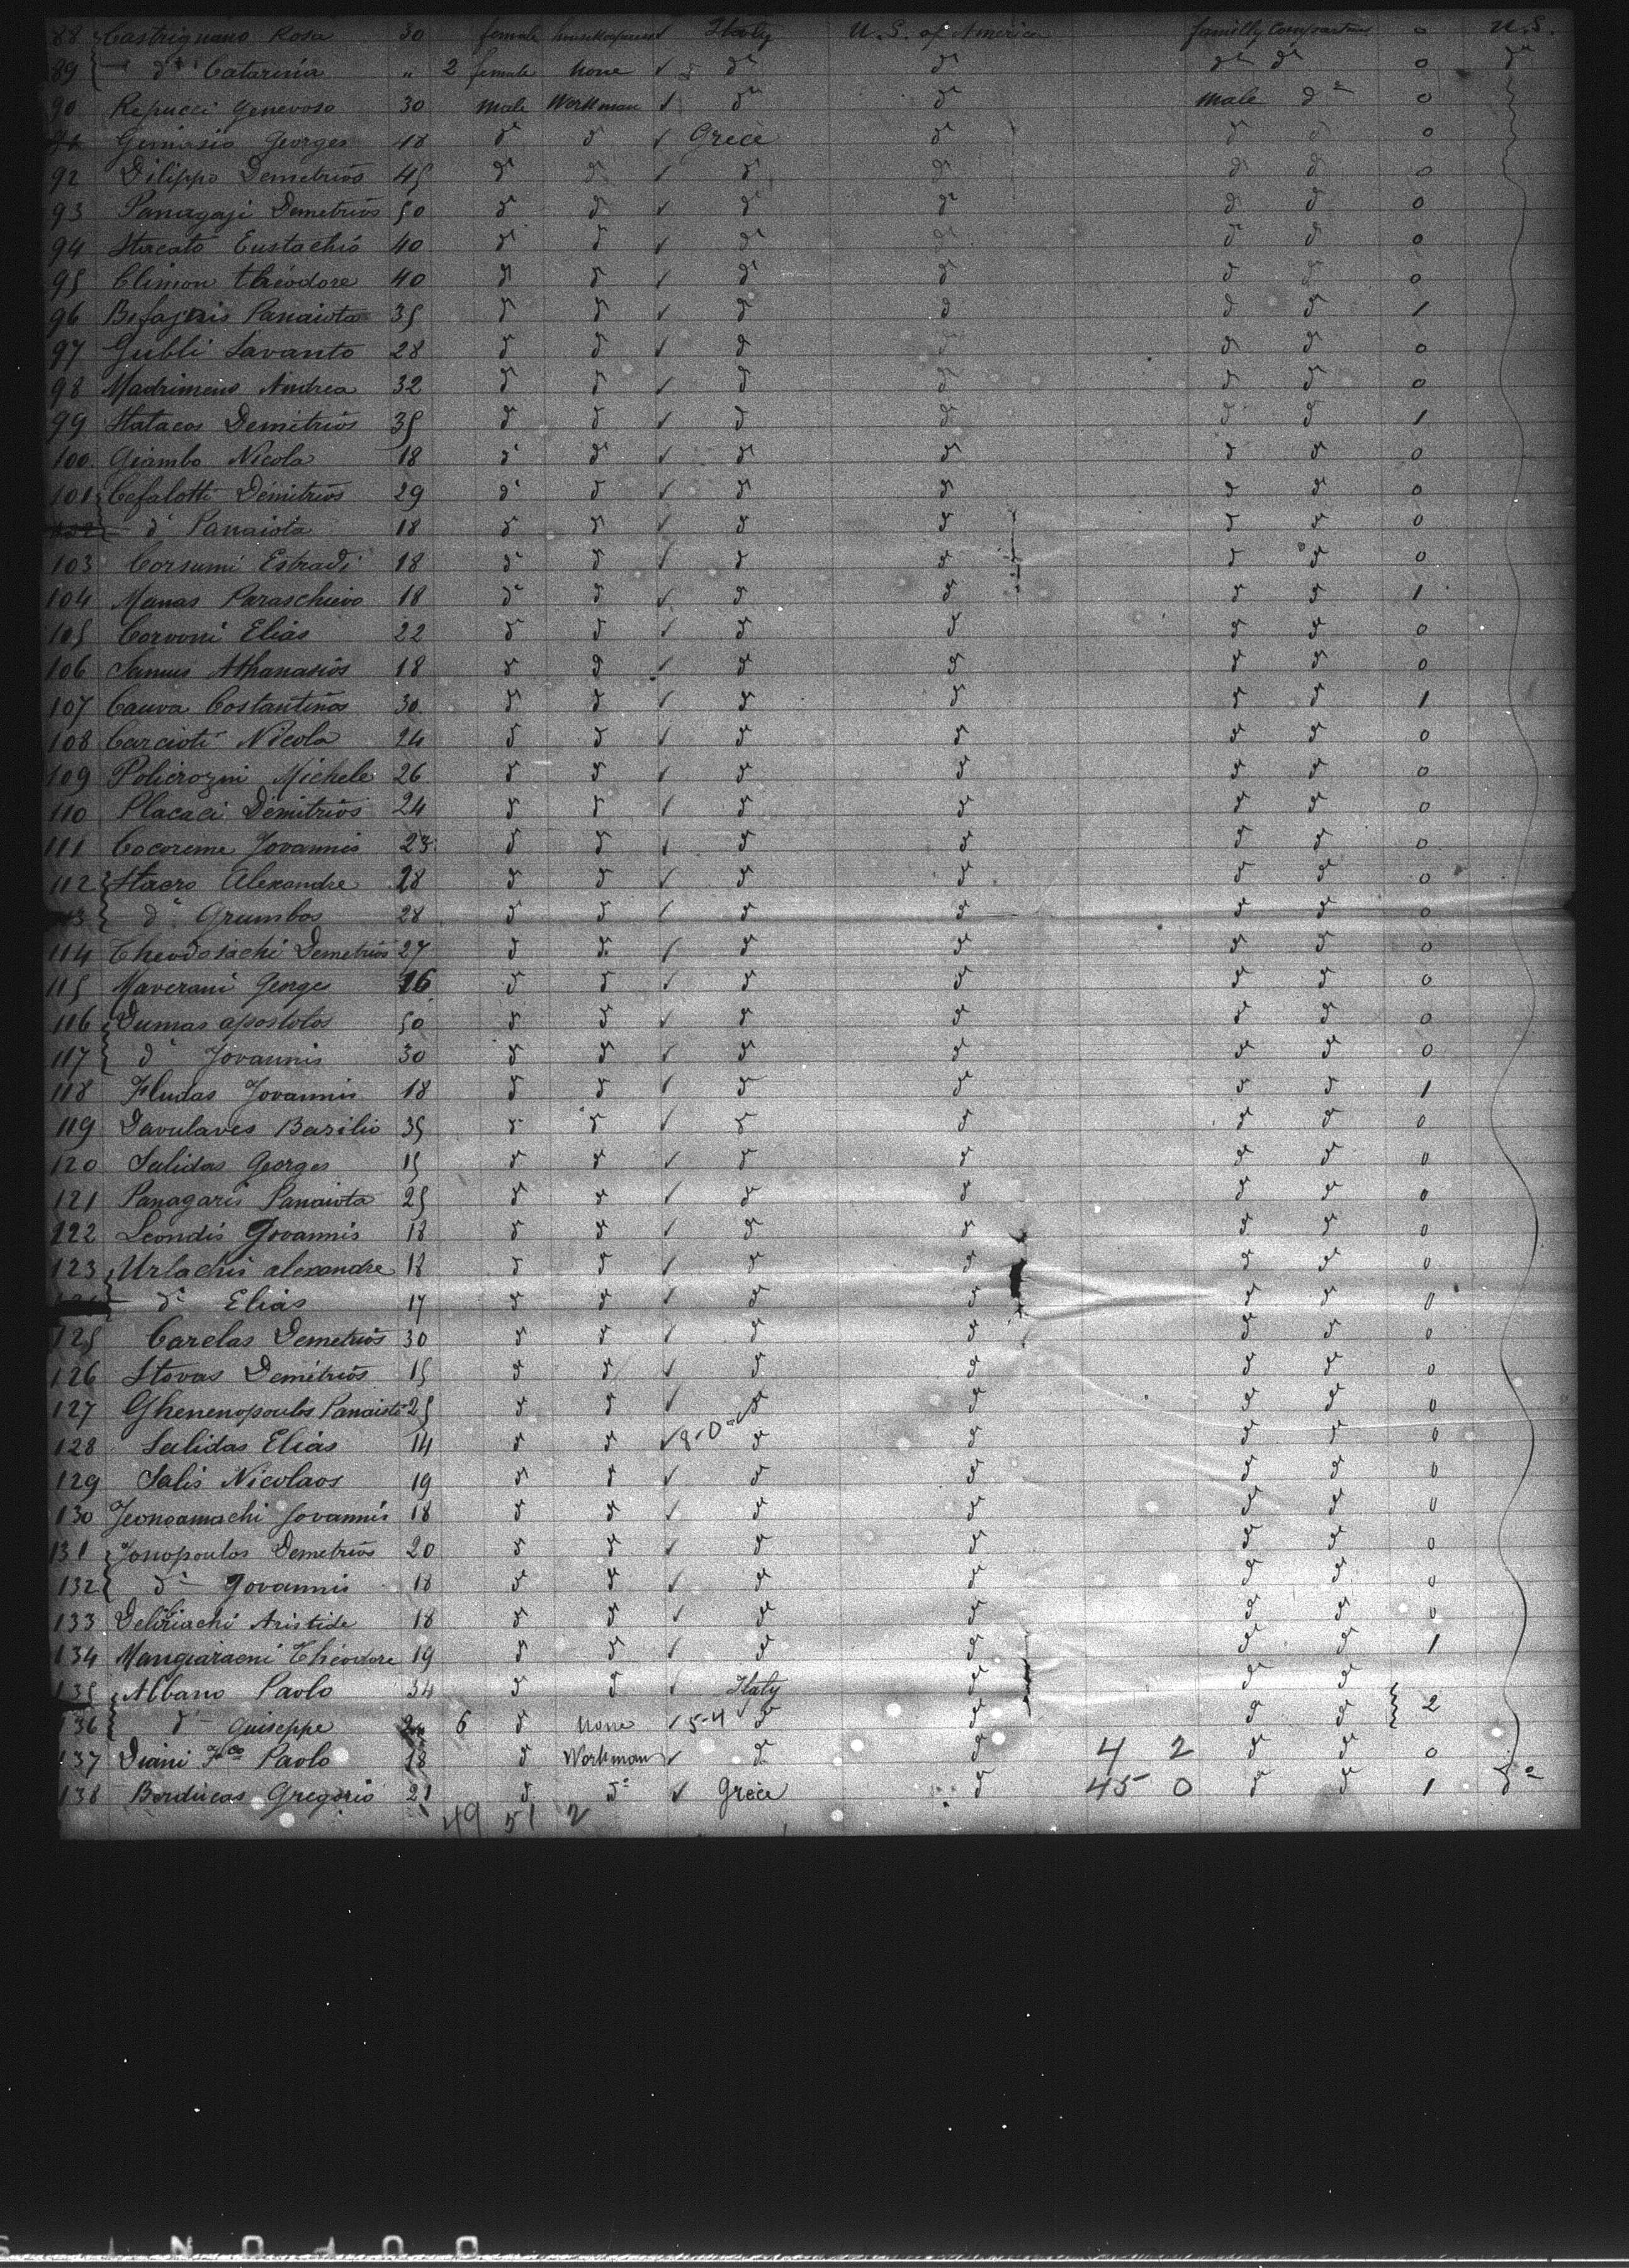 88 Castrignano Rosa 30 female housekeeper ✓ Italy U. S. of America familly Compartim 0 U.S.
89 d° Catarina " 2 female None ✓ d° d° d° d° 0 d°
90 Repucci Genevoso 30 male Workman ✓ d° d° male d° 0
Gimisio Georges 18 d° d° ✓ Grèce d° d° d° 0
92 Dilippo Demetrios 45 d° d° ✓ d° d° d° d° 0
93 Panagaji Demetrios 50 d° d° ✓ d° d° d° d° 0
94 Stacato Eustachio 40 d° d° ✓ d° d° d° d° 0
95 Climon théodore 40 d° d° ✓ d° d° d° d° 0
96 Panaiota 35 d° d° ✓ d° d° d° d° 1
97 Gubli Savanto 28 d° d° ✓ d° d° d° d° 0
98 Madrimeno Andrea 32 d° d° ✓ d° d° d° d° 0
99 Statacos Demitrios 35 d° d° ✓ d° d° d° d° 1
100 Giambo Nicola 18 d° d° ✓ d° d° d° d° 0
101 Cefalotti Demitrios 29 d° d° ✓ d° d° d° d° 0
d° Panaiota 18 d° d° ✓ d° d° d° d° 0
103 Corsumi Estradi 18 d° d° ✓ d° d° d° d° 0
104 Manas Paraschievo 18 d° d° ✓ d° d° d° d° 1
105 Corvoni Elias 22 d° d° ✓ d° d° d° d° 0
106 Samus Athanasios 18 d° d° ✓ d° d° d° d° 0
107 Cauva Costantinos 30 d° d° ✓ d° d° d° d° 1
108 Carcioti Nicola 24 d° d° ✓ d° d° d° d° 0
109 Policrozni Michele 26 d° d° ✓ d° d° d° d° 0
110 Placaci Demitrios 24 d° d° ✓ d° d° d° d° 0
111 Cocoreme Jovannis 23 d° d° ✓ d° d° d° d° 0
112 Stacro Alexandre 28 d° d° ✓ d° d° d° d° 0
d° Grumbos 28 d° d° ✓ d° d° d° d° 0
114 Theodosachi Demetrios 27 d° d° ✓ d° d° d° d° 0
115 Maverani George 16 d° d° ✓ d° d° d° d° 0
116 Dumas apostolos 50 d° d° ✓ d° d° d° d° 0
117 d° Jovannis 30 d° d° ✓ d° d° d° d° 0
118 Fludas Jovannis 18 d° d° ✓ d° d° d° d° 1
119 Davulaves Basilio 35 d° d° ✓ d° d° d° d° 0
120 Salidas Georges 15 d° d° ✓ d° d° d° d° 0
121 Panagaris Panaiota 25 d° d° ✓ d° d° d° d° 0
122 Leondis Jovannis 18 d° d° ✓ d° d° d° d° 0
123 Urlachis alexandre 18 d° d° ✓ d° d° d° d° 0
d° Elias 17 d° d° ✓ d° d° d° d° 0
125 Carelas Demetrios 30 d° d° ✓ d° d° d° d° 0
126 Stovas Demitrios 15 d° d° ✓ d° d° d° d° 0
127 Ghenenopoulos Panaioti 25 d° d° ✓ d° d° d° d° 0
128 Salidas Elias 14 d° d° ✓ 8-0 d° d° d° d° 0
129 Salis Nicolaos 19 d° d° ✓ d° d° d° d° 0
130 Jeonoamachi Jovannis 18 d° d° ✓ d° d° d° d° 0
131 Jonopoulos Demetrios 20 d° d° ✓ d° d° d° d° 0
132 d° Jovannis 18 d° d° ✓ d° d° d° d° 0
133 Deliriachi Aristide 18 d° d° ✓ d° d° d° d° 0
134 Mangiaracni Théodore 19 d° d° ✓ d° d° d° d° 1
135 Albano Paolo 34 d° d° ✓ Italy d° d° d°
136 d° Guiseppe 6 d° None ✓ 5-4 d° d° d° d° 2
137 Diani Fco Paolo 18 d° Workman ✓ d° d° 4 2 d° d° 0
138 Borducas Gregorio 21 d° d° ✓ Grèce d° 45 0 d° d° 1 d°
49 51 2